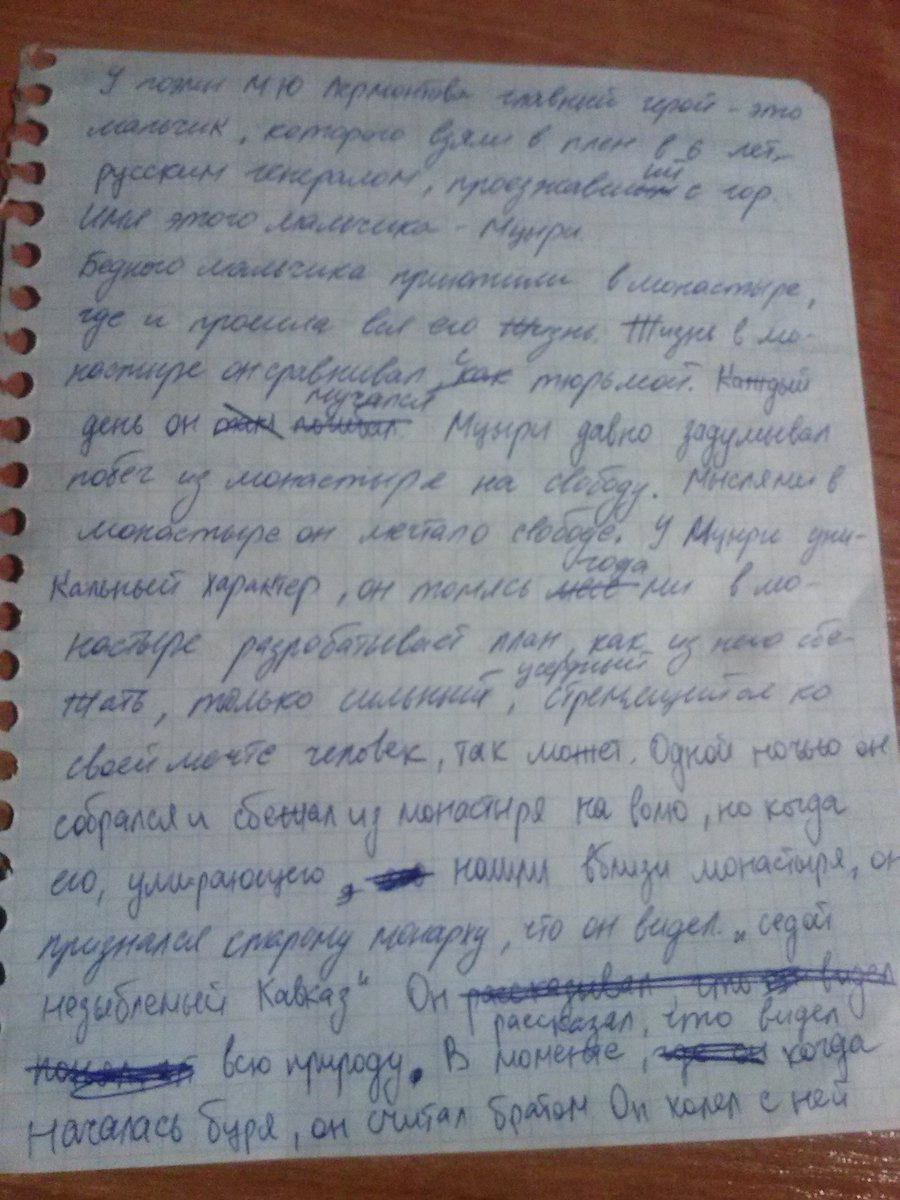 У поэмы М Ю Лермонтова главный герой - это
мальчик, которого взяли в плен в 6 лет,
русским генералом, проезжавший с гор.
Имя этого мальчика - Мцыри
Бедного мальчика приютили в монастыре,
где и прошла вся его жизнь. Жизнь в мо-
настыре он сравнивал, с тюрьмой. Каждый
день он мучался Мцыри давно задумывал
побег из монастыря на свободу. Мыслями в
монастыре он мечтал о свободе. У Мцыри уни-
кальный характер, он томясь годами в мо-
настыре разробатывает план, как из него сбе-
жать, только сильный, усердный стремящийся ко
своей мечте человек, так может. Одной ночью он
собрался и сбежал из монастыря на волю, но когда
его, умирающего, нашли вблизи монастыря, он
признался старому монарху, что он видел „седой
незыблемый Кавказ" Он
рассказал, что видел
всю природу. В моменте, когда
началась буря, он считал братом Он хотел с ней